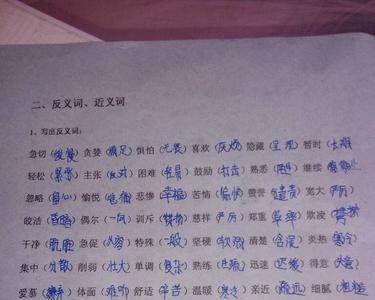 二、反义词、近义词
1、写出反义词：
急切（缓慢）贪婪（满足）惧怕（无畏）喜欢（厌烦）隐藏（呈现）暂时（长期）
轻松（紧张）主张（反对）困难（容易）鼓励（打击）熟悉（陌生）继续（
忽略（留心）愉悦（ ）悲惨（幸福）苦恼（愉悦）赞誉（谴责）宽大（严厉）
皎洁（昏暗）偶尔（一向）训斥（赞扬）慈祥（严厉）郑重（草率）欺凌（
干净（肮脏）急促（从容）特殊（一般）坚硬（软弱）清楚（含混）炎热（寒冷）
集中（分散）削弱（壮大）单调（复杂）熟练（生疏）迅速（迟缓）得意（失意）
爱慕（嫌弃）体面（难听）舒适（辛苦）温暖（寒冷）亲近（疏远）细腻（粗糙